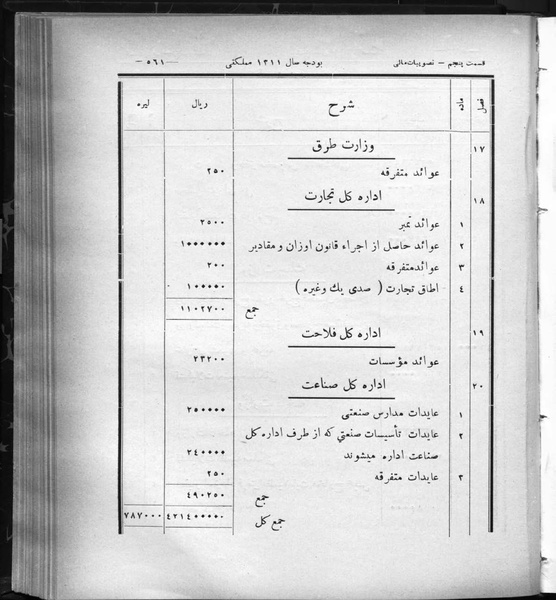 قسمت پنجم – تصویبات مالی بودجه سال ۱۳۱۱ مملکتی —۵۶۱—
فصل ماده شرح ریال لیره
۱۷ وزارت طرق
عوائد متفرقه ۲۵۰
۱۸ اداره کل تجارت
۱ عوائد تمبر ۲۵۰۰
۲ عوائد حاصل از اجراء قانون اوزان و مقادیر ۱۰۰۰۰۰۰
۳ عوائد متفرقه ۲۰۰
۴ اطاق تجارت ( صدی یك وغیره ) ۱۰۰۰۰۰
جمع ۱۱۰۲۷۰۰
۱۹ اداره کل فلاحت
عوائد مؤسسات ۲۳۲۰۰
۲۰ اداره کل صناعت
۱ عایدات مدارس صنعتی ۲۵۰۰۰۰
۲ عایدات تأسیسات صنعتی که از طرف اداره کل
صناعت اداره میشوند ۲۴۰۰۰۰
۳ عایدات متفرقه ۲۵۰
جمع ۴۹۰۲۵۰
جمع کل ۴۲۱۴۰۰۰۰۰ ۷۸۷۰۰۰